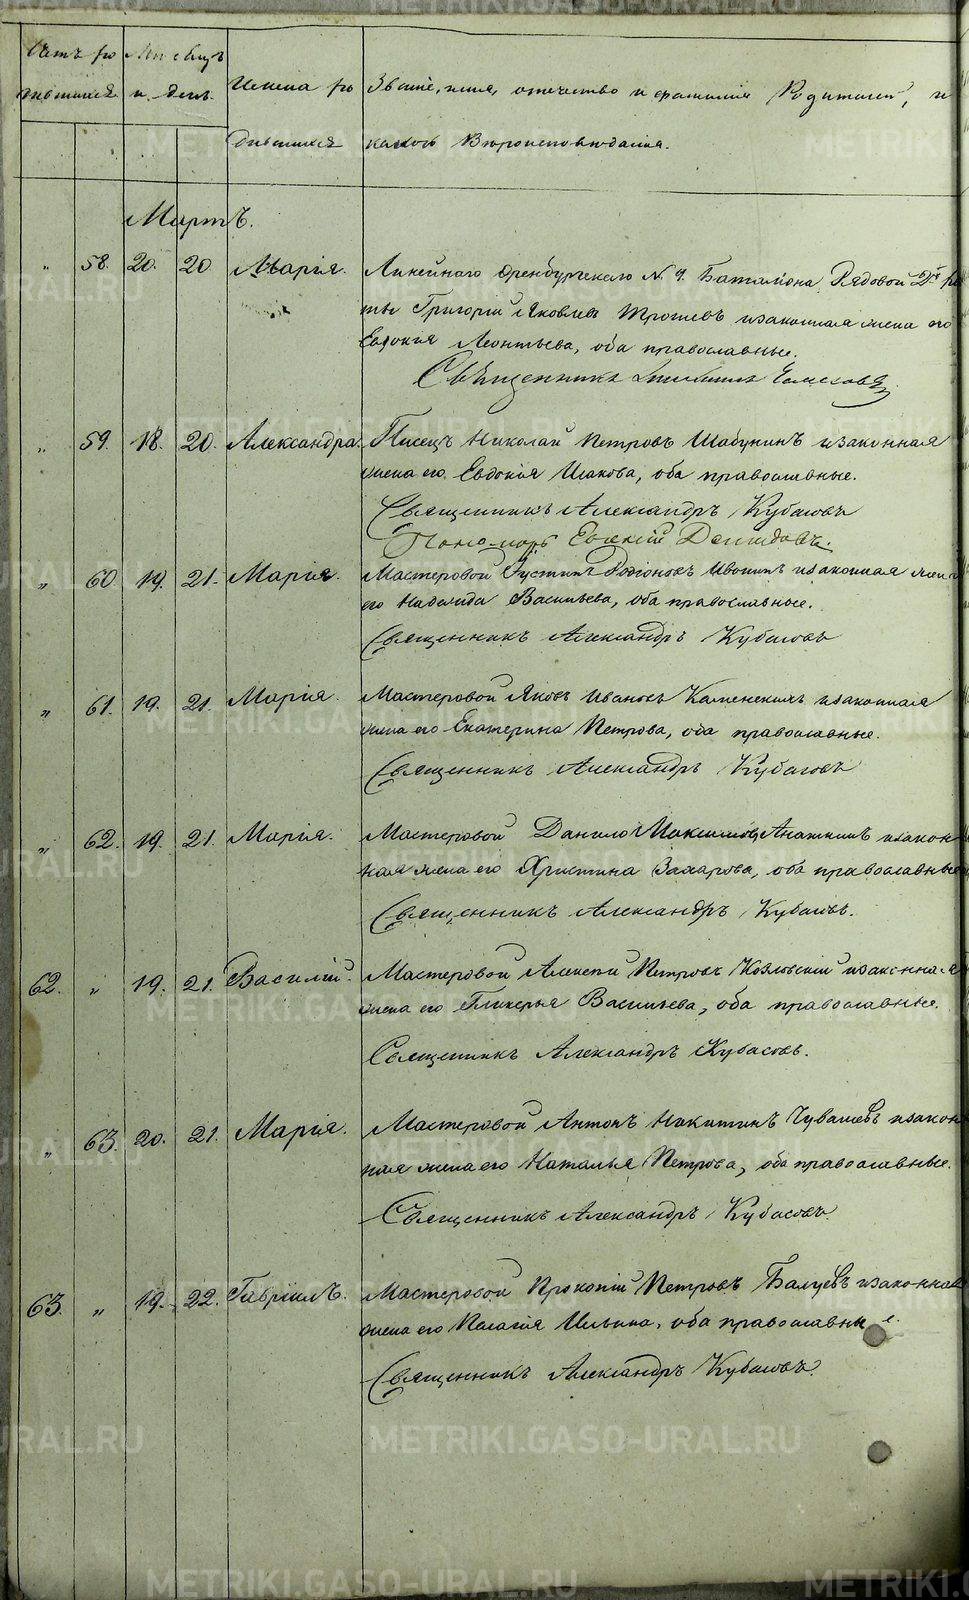 Счетъ ро Мѣсяцъ Имена ро Званіе, имя, отечество и фамилія Родителей, и
дившихся и день. дившихся какого Вѣроисповѣданія.
Мартъ.
" 58. 20. 20. Марія. Линейнаго Оренбургскаго № 9. Баталіона Рядовой 2й ро
ты Григорій Яковлевъ изаконная жена его
Евдокия Леонтьева, оба православные.
Священникъ
" 59. 18. 20. Александра. Писецъ Николай Петровъ Шабунинъ изаконная
жена его Евдокія Исакова, оба православные.
Священникъ Александръ Кубасовъ
Пономарь Евгеній Давидовъ.
" 60 19. 21. Марія. Мастеровой Іустинъ Родіоновъ Ивонинъ изаконная жена
его Надежда Васильева, оба православные.
Священникъ Александръ Кубасовъ
" 61. 19. 21. Марія. Мастеровой Яковъ Ивановъ Каменскихъ изаконная
жена его Екатерина Петрова, оба православные.
Священникъ Александръ Кубасовъ
" 62. 19. 21. Марія. Мастеровой Данило Максимовъ изакон
ная жена его Христина Захарова, оба православные
Священникъ Александръ Кубасовъ.
62. " 19. 21. Василій. Мастеровой Алексѣй Петровъ Козловскій изаконная
жена его Гликерья Васильева, оба православные.
Священникъ Александръ Кубасовъ.
" 63. 20. 21. Марія. Мастеровой Антонъ Никитинъ Чувашевъ изакон
ная жена его Наталья Петрова, оба православные.
Священникъ Александръ Кубасовъ
63. " 19. 22. Гавріилъ. Мастеровой Прокопій Петровъ Балуевъ изаконная
жена его Пелагія Ильина, оба православные.
Священникъ Александръ Кубасовъ.
METRIKI.GASO-URAL.RU